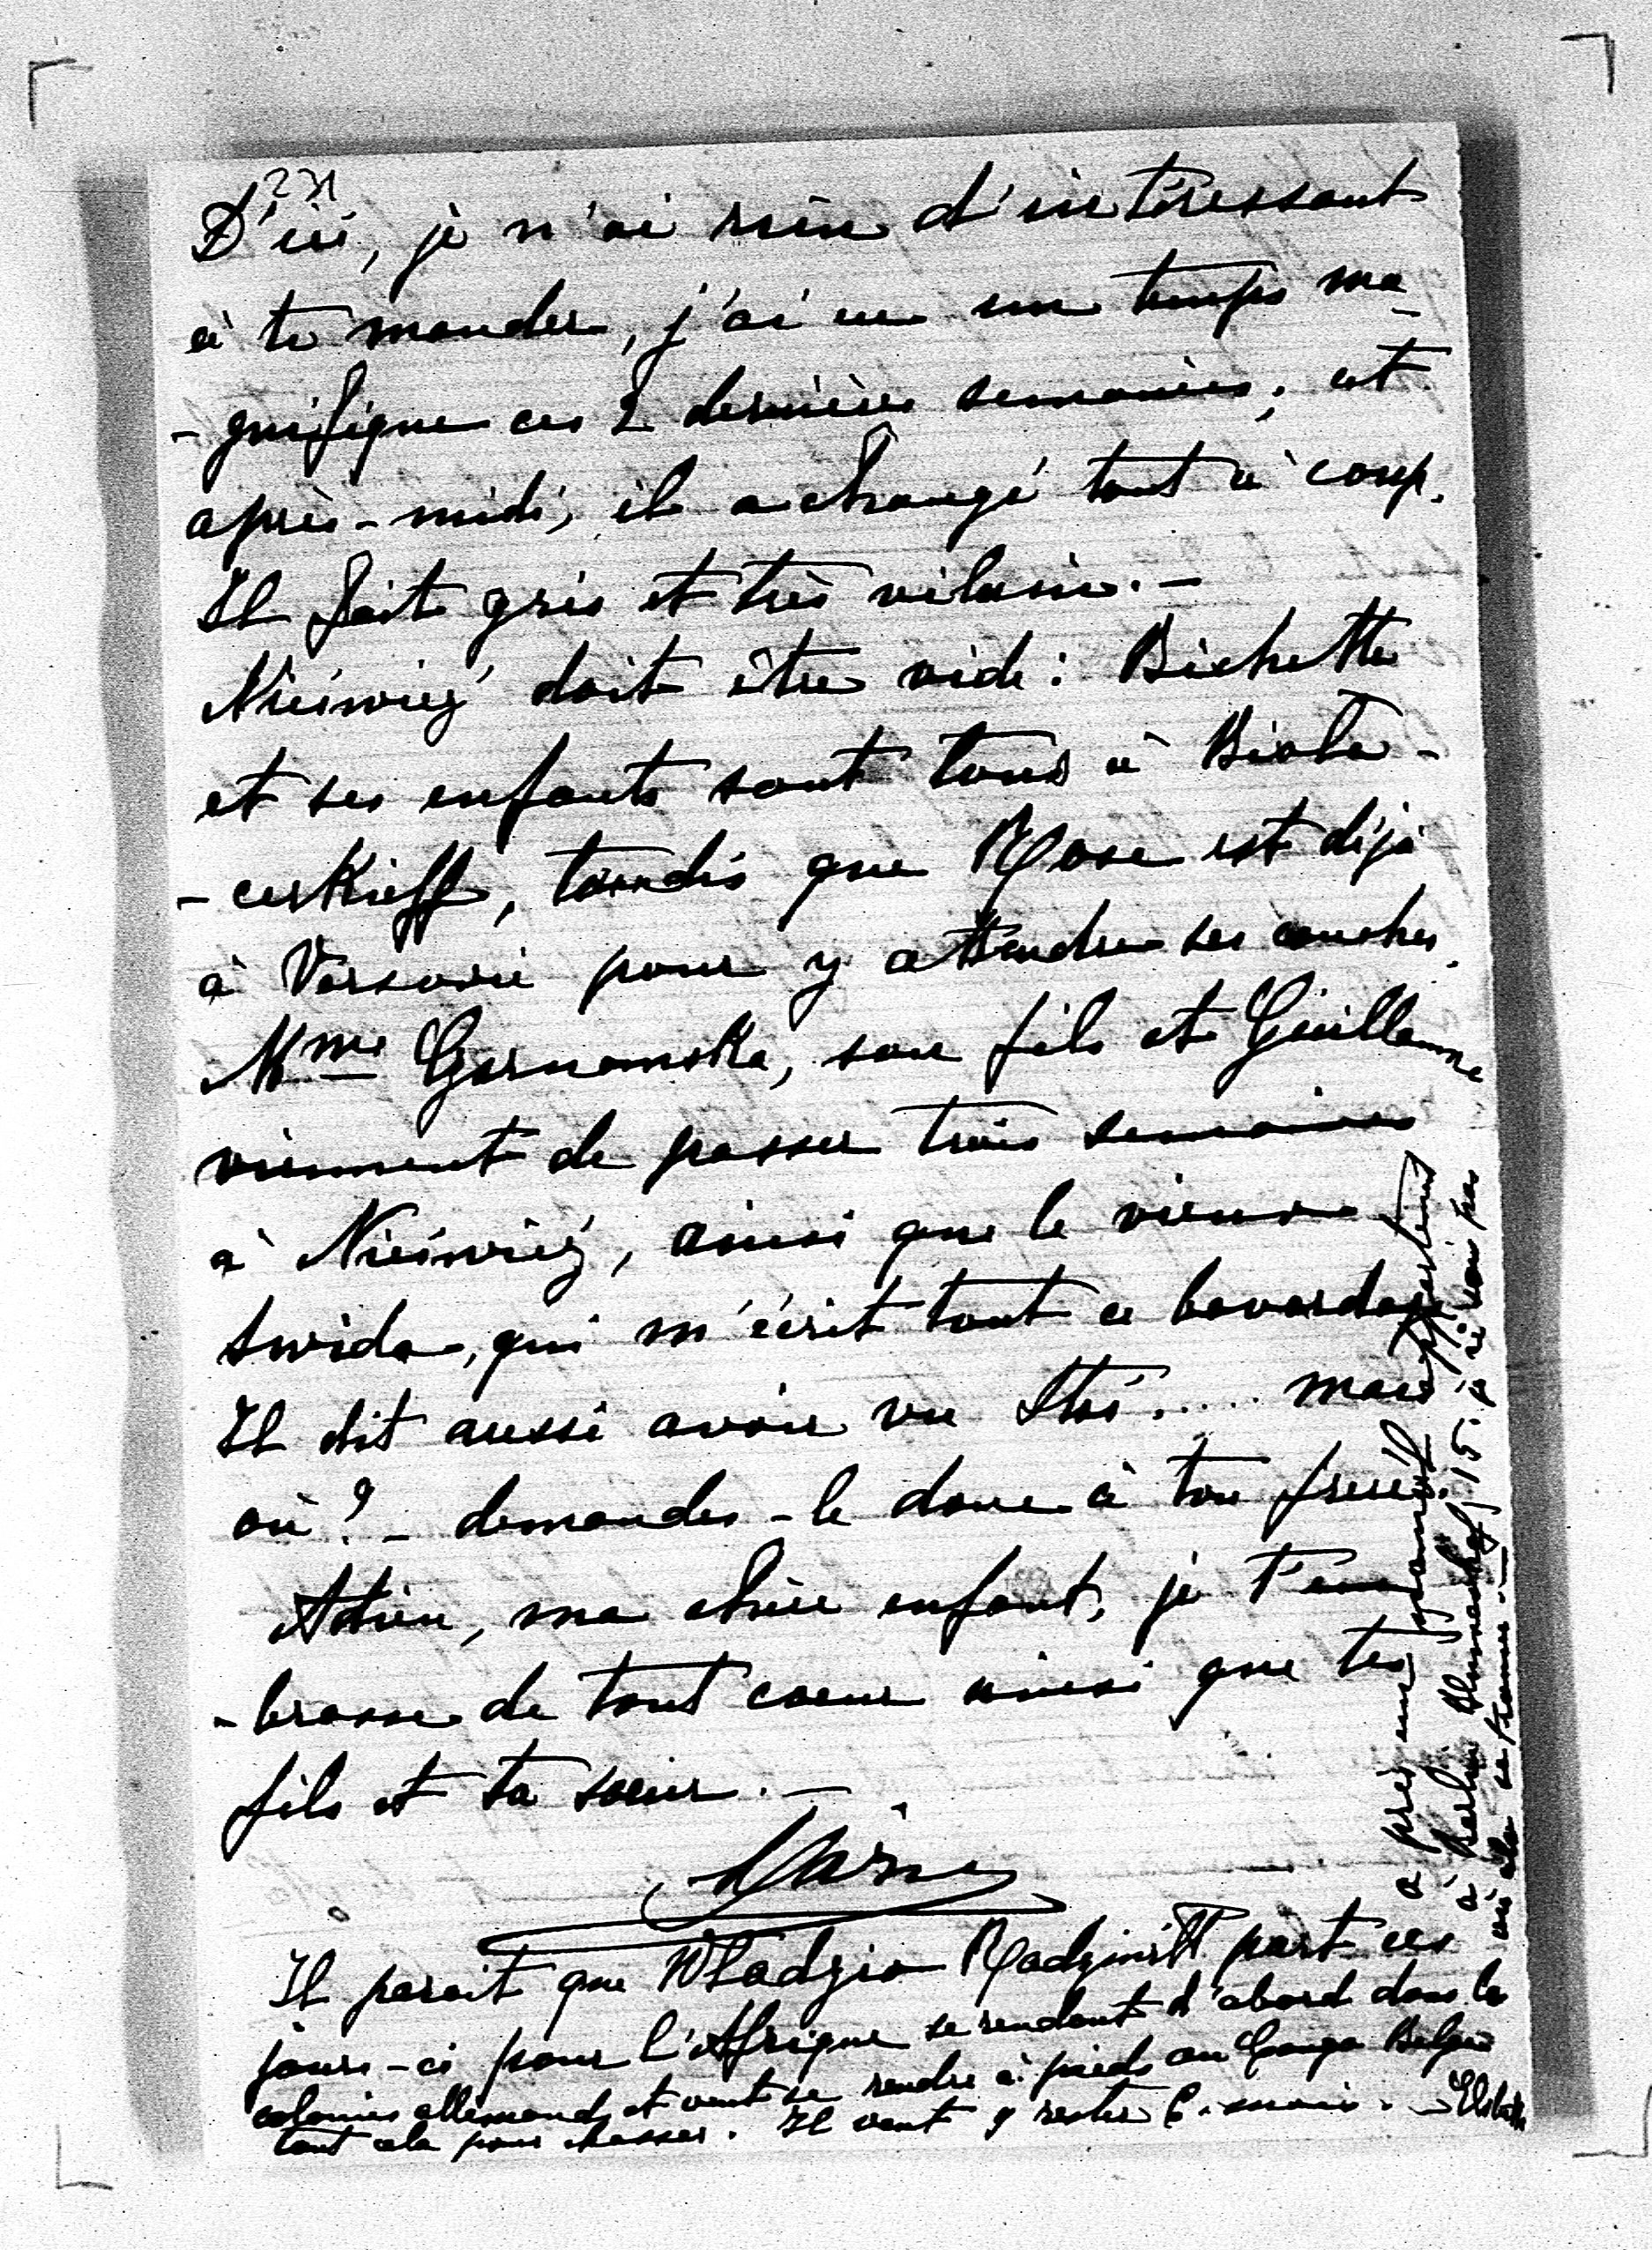 271
D'ici, je n'ai rien d'intéressant
à te mander, j'ai eu un temps ma-
-gnifique ces 2 dernières semaines; cet
après-midi, il a changé tout à coup.
Il fait gris et très vilain. —
Nieświeź doit être vide: Bichette
et ses enfants sont tous à Biała-
-cerkieff, tandis que Rose est déjà
à Varsovie pour y attendre ses couches.
Mme Garnomska, son fils et Guillaume
viennent de passer trois semaines
à Nieświéź, ainsi que le vieux
Swida, qui m'écrit tout ce bavardage
Il dit aussi avoir vu Stas..... mais
où? - demandes-le donc à ton frère.
Adieu, ma chère enfant, je t'em
-brasse de tout coeur ainsi que tes
fils et ta soeur. —
Marie
Il parait que Wladzio Radziwiłł part ces
jours-ci pour l'Afrique se rendant d'abord dans les
colonies allemands et veut se rendre à pieds au Congo Belge
tout cela pour chasser. Il veut y rester 6. mois. - Elsbeth
a pris un grand appartement
à Berlin 15. à
où cela se trouve. —